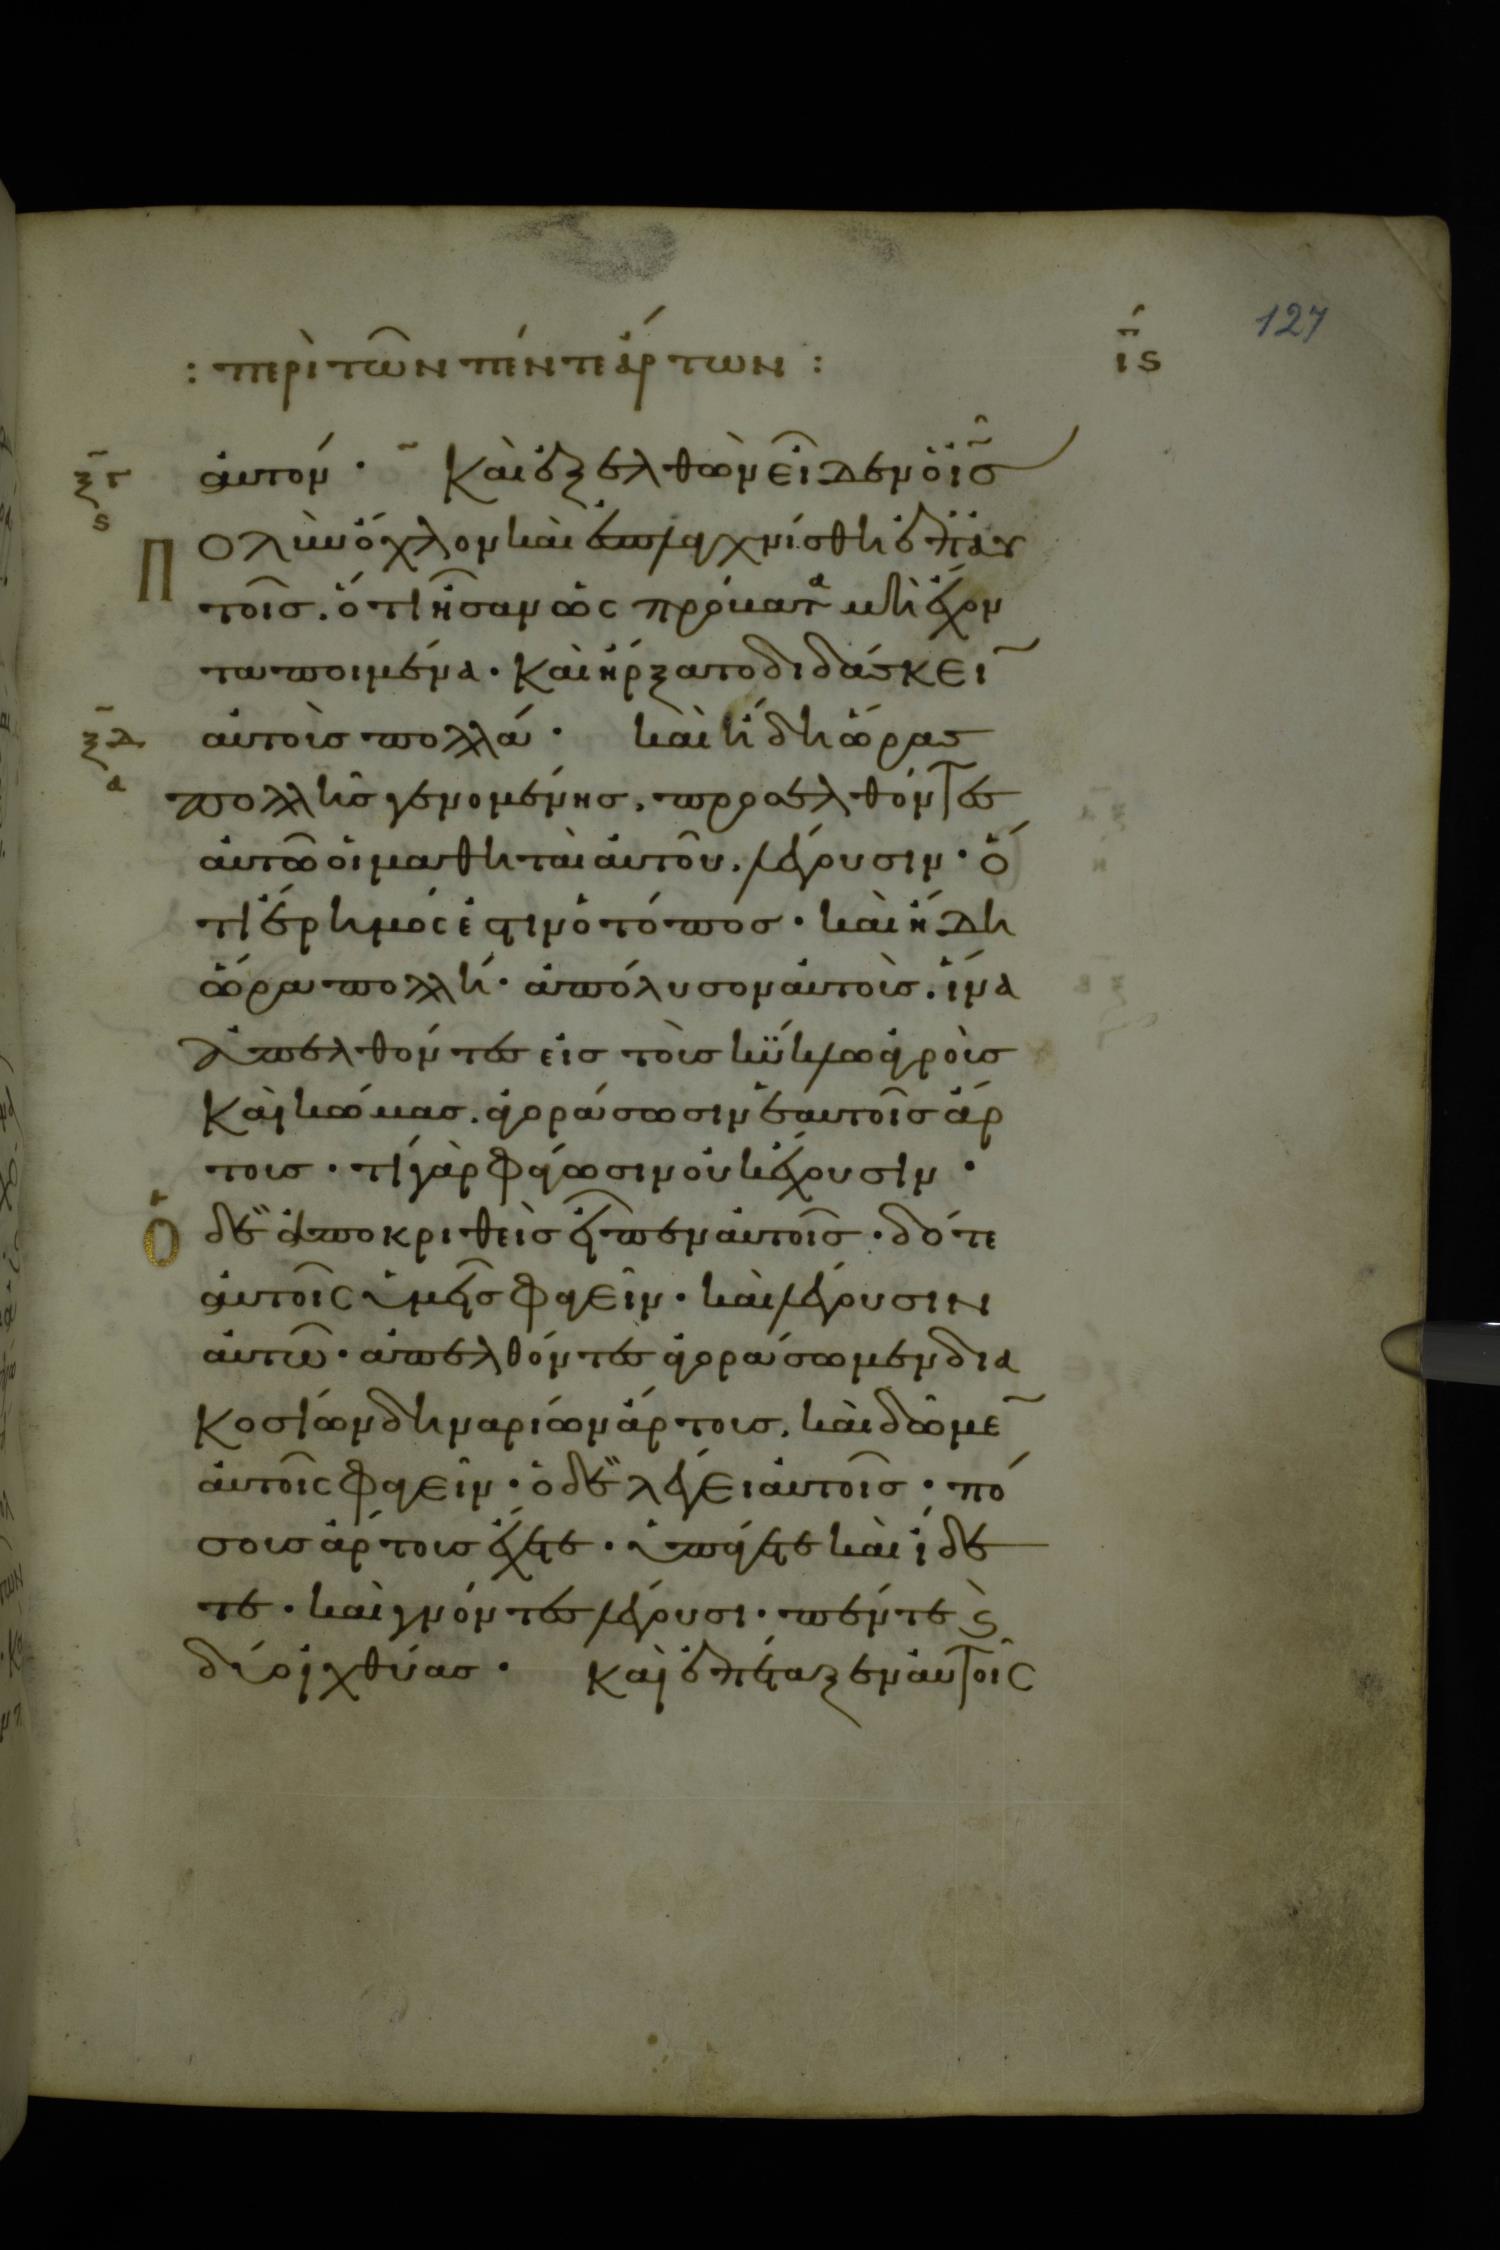 127
: περὶ τῶν πέντε ἄρτων : ιϛ
ξγ ϛ αυτον · Καὶ ἐξελθὼν εἶδεν ὁ ι̅ς̅
Πολὺν ὄχλον καὶ ἐσπλαγχνίσθη ἐπ' αυ
τοῖς. ὅτι ἦσαν ὡς πρόβατα μὴ ἔχον
τα ποιμένα · Καὶ ἤρξατο διδάσκει̅
ξδ α αὐτοὺς πολλά · καὶ ἤδη ὥρας
πολλῆς γενομένης, προσελθόντες
αὐτῶ οἱ μαθηταὶ αὐτοῦ, λέγουσιν · ὅ
τι ἔρημός ἐστιν ὁ τόπος · καὶ ἤδη
ὥρα πολλή · ἀπόλυσον αὐτοὺς. ἵνα
ἀπελθόντες εἰς τοὺς κύκλω ἀγροὺς
Καὶ κώμας. ἀγοράσωσιν ἑαυτοῖς ἄρ
τους · τί γὰρ φάγωσιν οὐκ ἔχουσιν ·
Ὁ δὲ ἀποκριθεὶς εἶπεν αὐτοῖς · δότε
αὐτοῖς ὑμεῖς φαγεῖν · καὶ λέγουσιν
αὐτῶ · ἀπελθόντες ἀγοράσωμεν δια
Κοσίων δηναρίων ἄρτους, καὶ δῶμε̅
αὐτοῖς φαγεῖν · ὁ δὲ λέγει αὐτοῖς · πό
σους ἄρτους ἔχετε · ὑπάγετε καὶ ἴδε
τε · καὶ γνόντες λέγουσι · πέντε ϛ
δύο ἰχθύας · Καὶ ἐπέταξεν αὐτοῖς